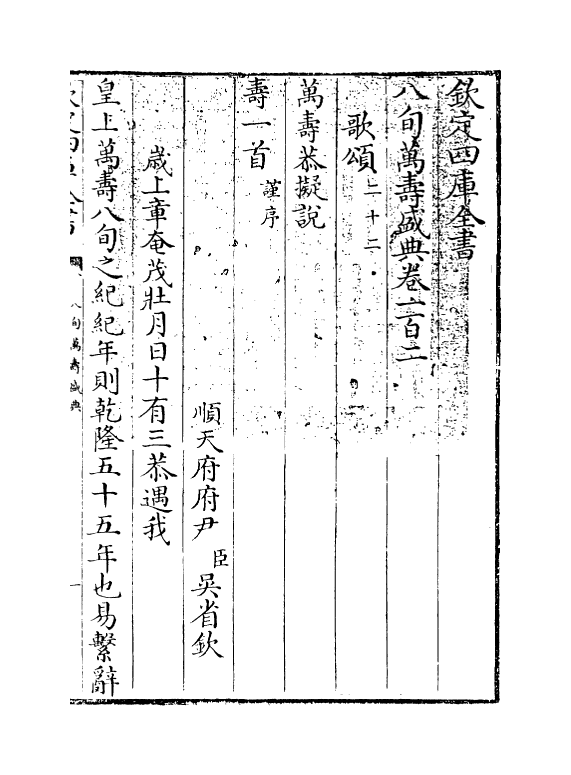 欽定四庫全書
八旬萬壽盛典卷一百二
歌頌二十二
萬壽恭擬說
壽一首謹序
順天府府尹臣吳省欽
歲上章奄茂壯月日十有三恭遇我
皇上萬壽八旬之紀紀年則乾隆五十五年也易繫辭
八旬萬壽盛典
一